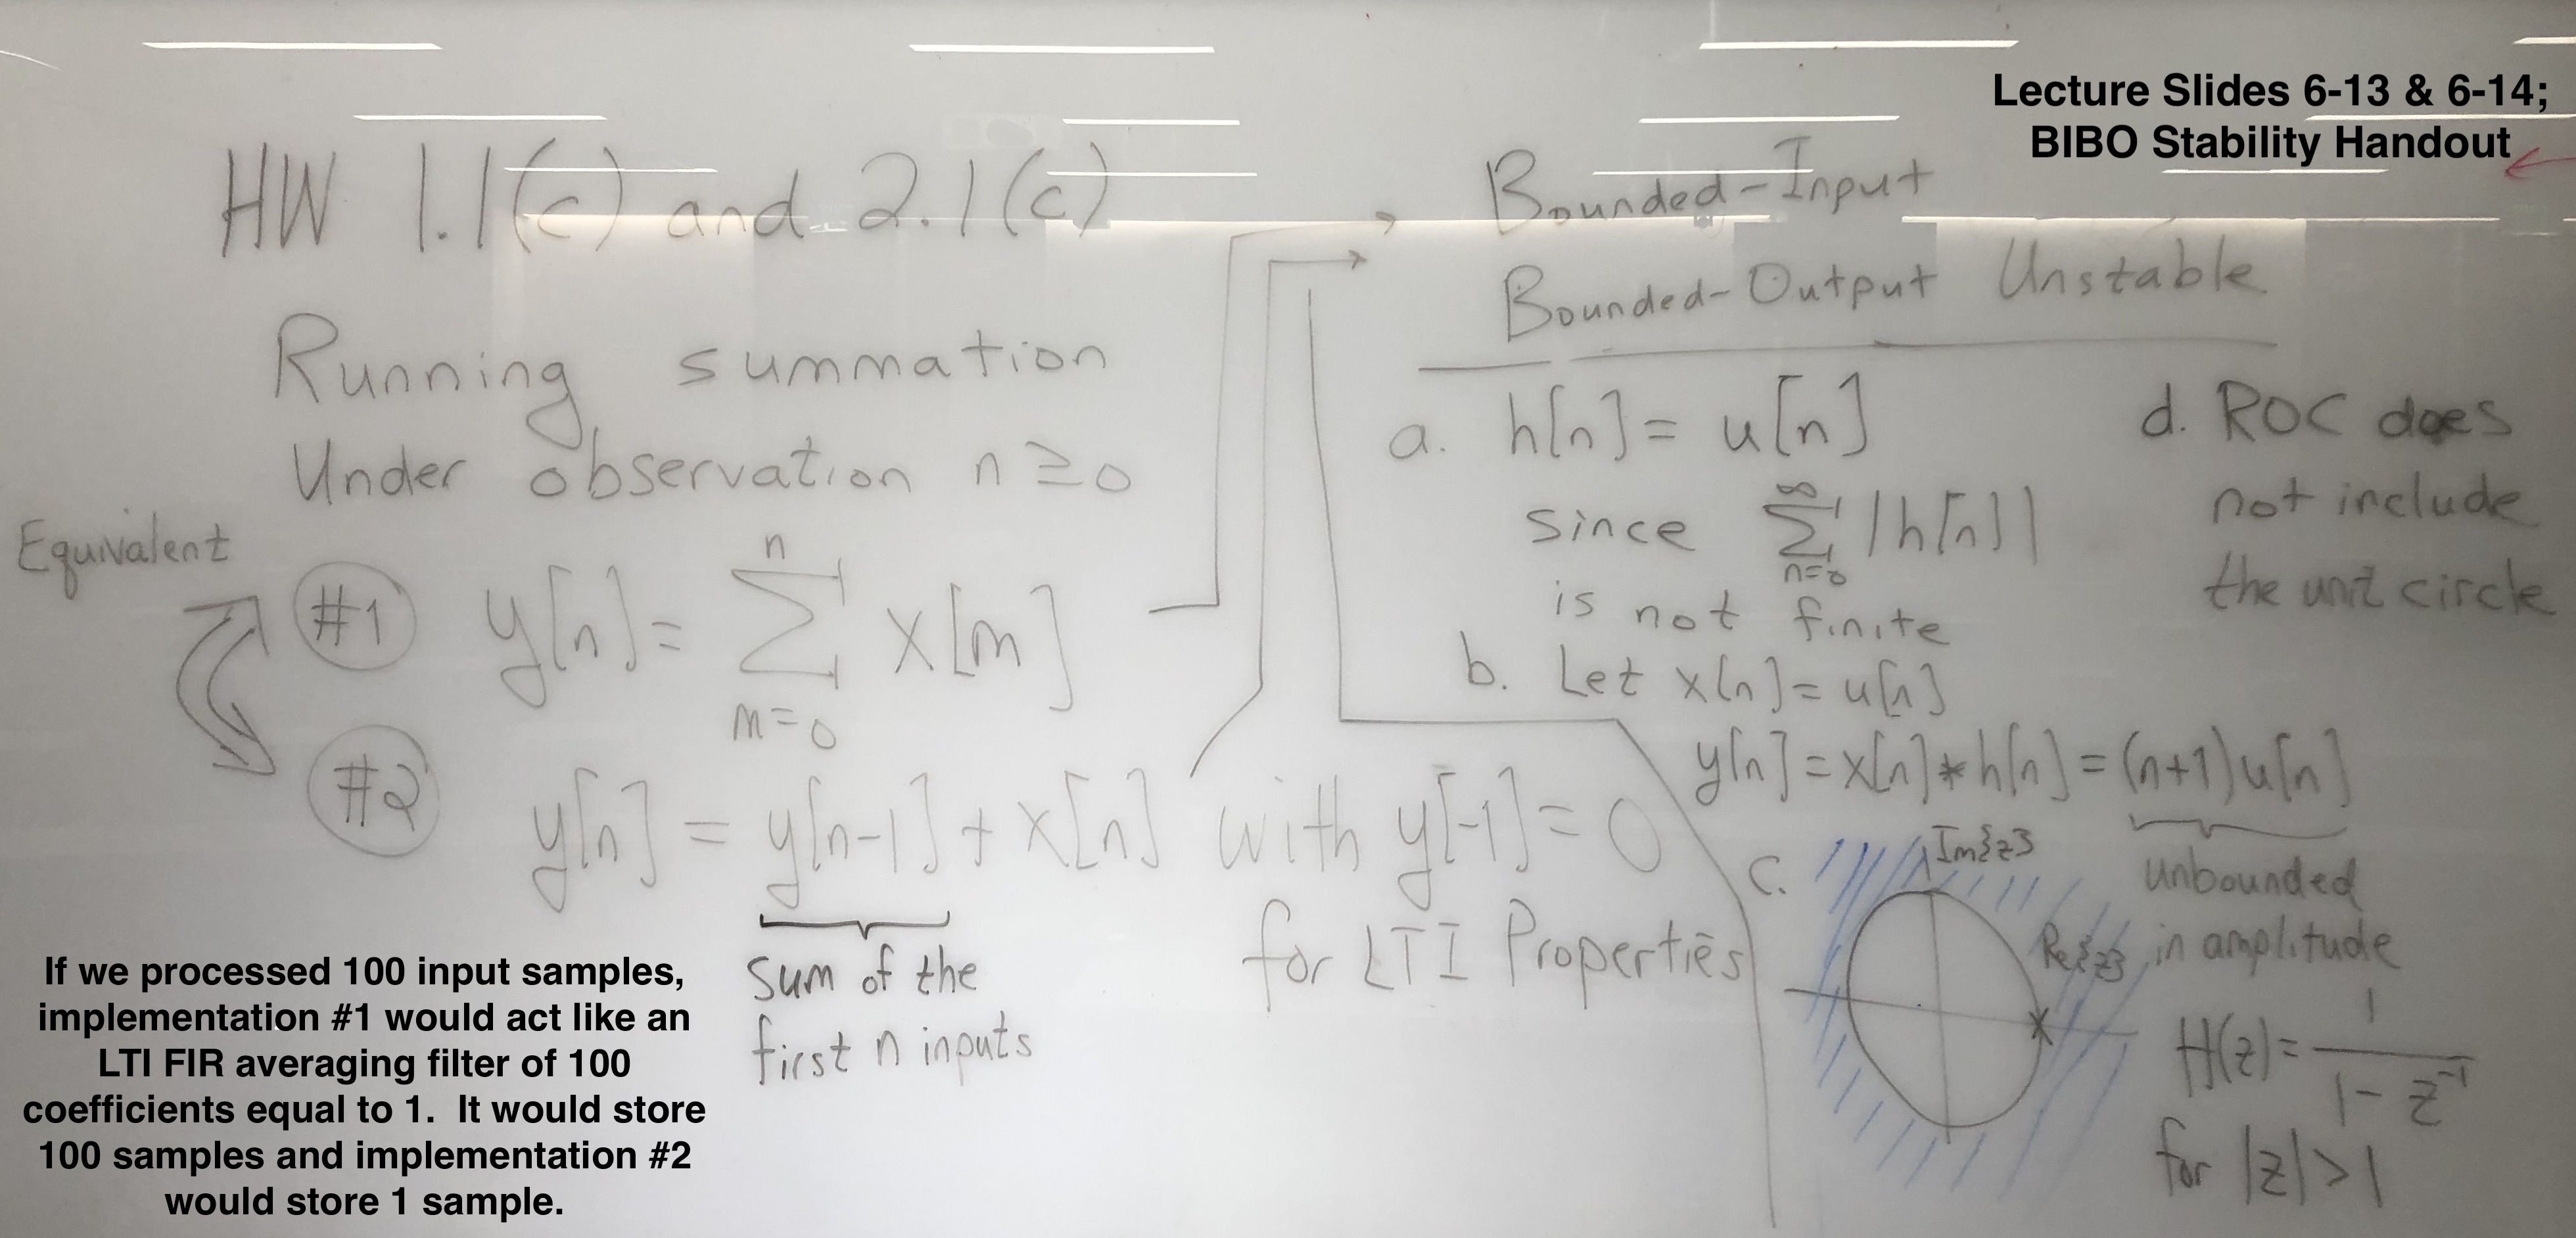 Lecture Slides 6-13 & 6-14;
BIBO Stability Handout
HW 1.1(c) and 2.1(c)
Running summation
Under observation n ≥ 0
Equivalent
#1 y[n] = \sum_{m=0}^{n} x[m]
#2 y[n] = y[n-1] + x[n] with y[-1] = 0
for LTI Properties
sum of the
first n inputs
If we processed 100 input samples,
implementation #1 would act like an
LTI FIR averaging filter of 100
coefficients equal to 1. It would store
100 samples and implementation #2
would store 1 sample.
Bounded-Input
Bounded-Output Unstable
a. h[n] = u[n]
since \sum_{n=0}^{∞} |h[n]|
is not finite
b. Let x[n] = u[n]
y[n] = x[n] * h[n] = (n+1)u[n]
unbounded
in amplitude
c.
Im{z}
Re{z}
X
H(z) = \frac{1}{1 - z^{-1}}
for |z| > 1
d. ROC does
not include
the unit circle